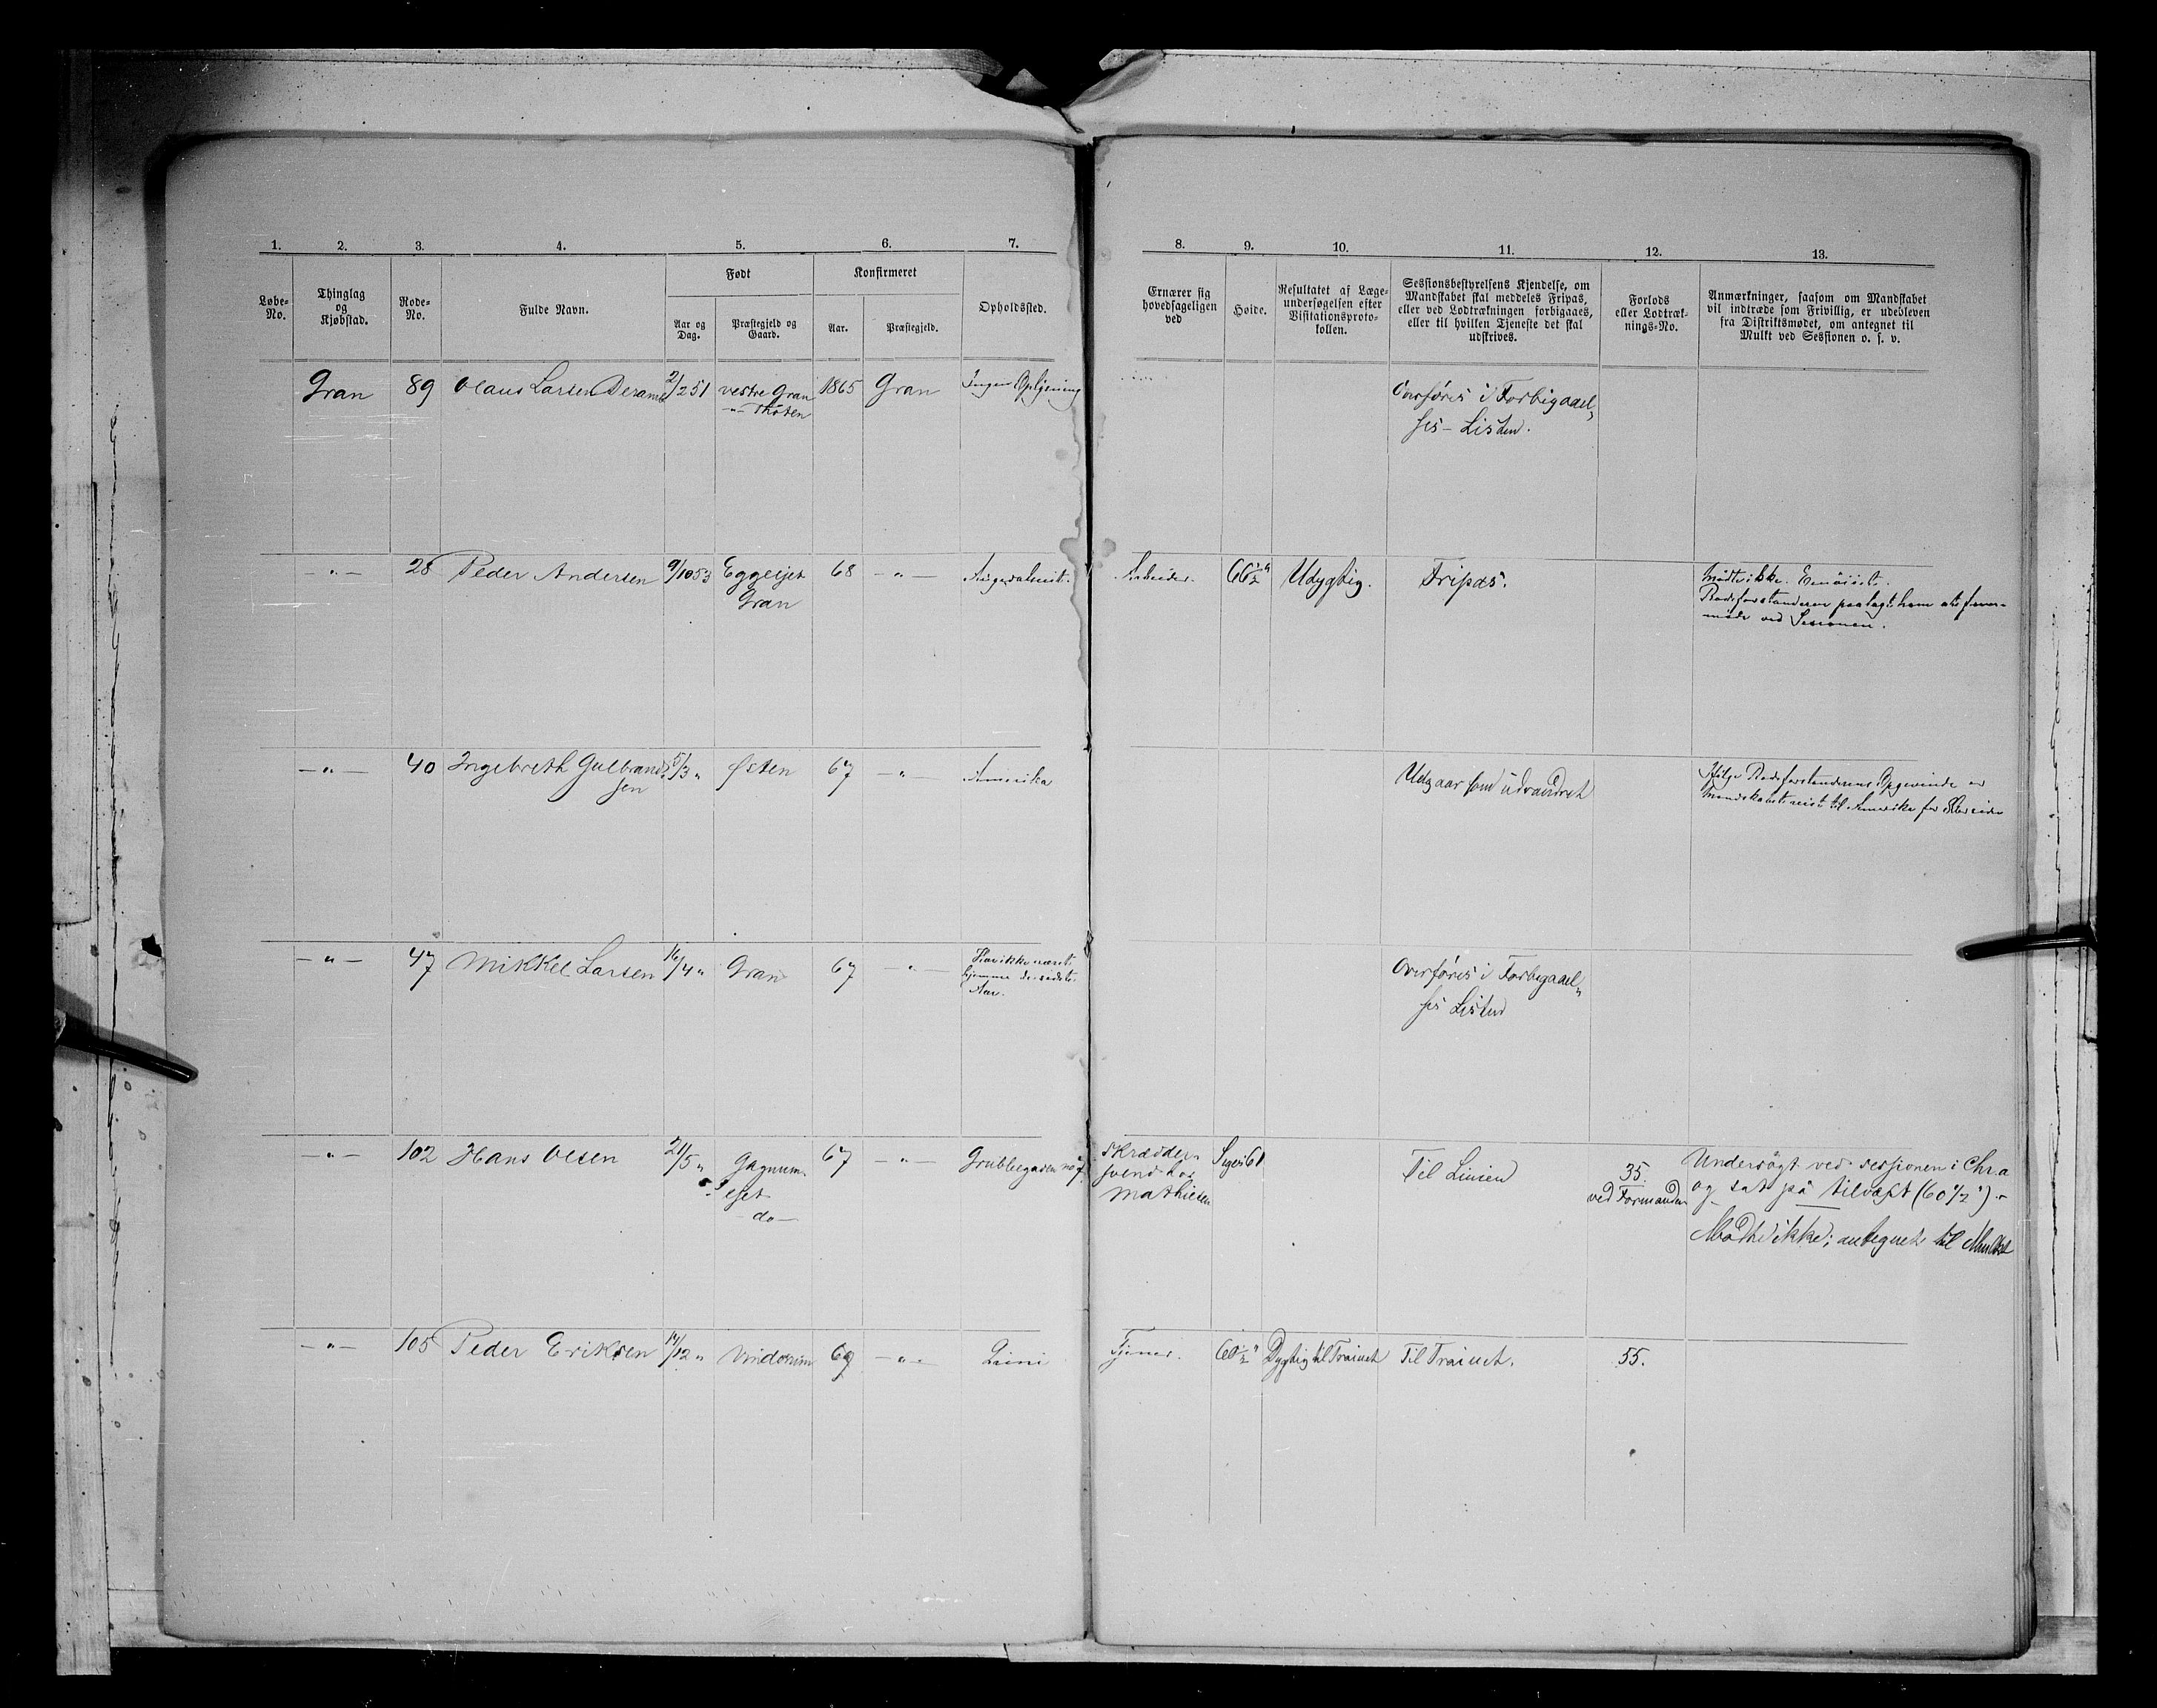 1.
2.
3.
4.
5.
6.
7.
8.
9.
10.
11.
12.
13.
Løbe-
No.
Thinglag
og
Kjøbstad.
Rode-
No.
Fulde Navn.
Født
Aar og
Dag.
Præstegjeld og
Gaard.
Konfirmeret
Aar.
Præstegjeld.
Opholdssted.
Ernærer sig
hovedsageligen
ved
Høide.
Resultatet af Læge-
undersøgelsen efter
Visitationsproto-
kollen.
Sessionsbestyrelsens Kjendelse, om
Mandskabet skal meddeles Fripas,
eller ved Lodtrækningen forbigaaes,
eller til hvilken Tjeneste det skal
udskrives.
Forlods
eller Lodtræk-
nings-No.
Anmærkninger, saasom om Mandskabet
vil indtræde som Frivillig, er udebleven
fra Distriktsmødet, om antegnet til
Mulkt ved Sessionen o. s. v.
Gran 89 Olaus Larsen 2/2 51 vestre Gran 1865 Gran Ingen Oplysning
-"- Thoten
Overføres i Forbigaael„
ses- Listen.
-"- 28 Peder Andersen 9/10 53 Eggeijet 68 -"-
Gran
Arbeider. 66½" Udygtig. Fripas.
Mødte ikke.
Rodeforstanderen paalagt ham at frem-
møde ved Sessionen.
-"- 40 Ingebreth Gulbrand 5/3 „ Østen 67 -"- Amerika
sen
Udgaar som udvandret
Ifølge Rodeforstanderens Opgivende er
Mandskabet reist til Amerika for
-"- 47 Mikkel Larsen 16/4 „ Gran 67 -"- Har ikke været
hjemme de sidste
Aar.
Overføres i Forbigaael„
ses Listen
-"- 102 Hans Olsen 21/5 „ Gagnum- 67 -"- Grubbegaden no 7.
ejet
-do-
Skrædder-
svend hos
Mathiesen
61
Til Linien
35.
ved Formanden
Undersøgt ved sessionen i Chra
og sat på tilvæxt (60½") -
Mødte ikke; antegnet til Mulkt
-"- 105 Peder Eriksen 17/12 „ Vindorum 69 -"-
Tjener. 60½" Dygtig til Trainet Til Trainet. 55.